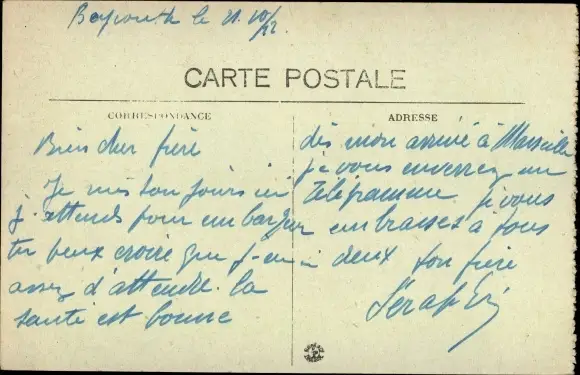 Beyrouth le 21.10/22
CARTE POSTALE
CORRESPONDANCE
ADRESSE
Bien cher frère
Je suis toujours ici
j'attends pour embarquer
tu peux croire que j'en ai
assez d'attendre. la
santé est bonne
dès mon arrivé à Marseille
je vous enverrez un
télégramme je vous
embrasses à tous
deux ton frère
Séraphin